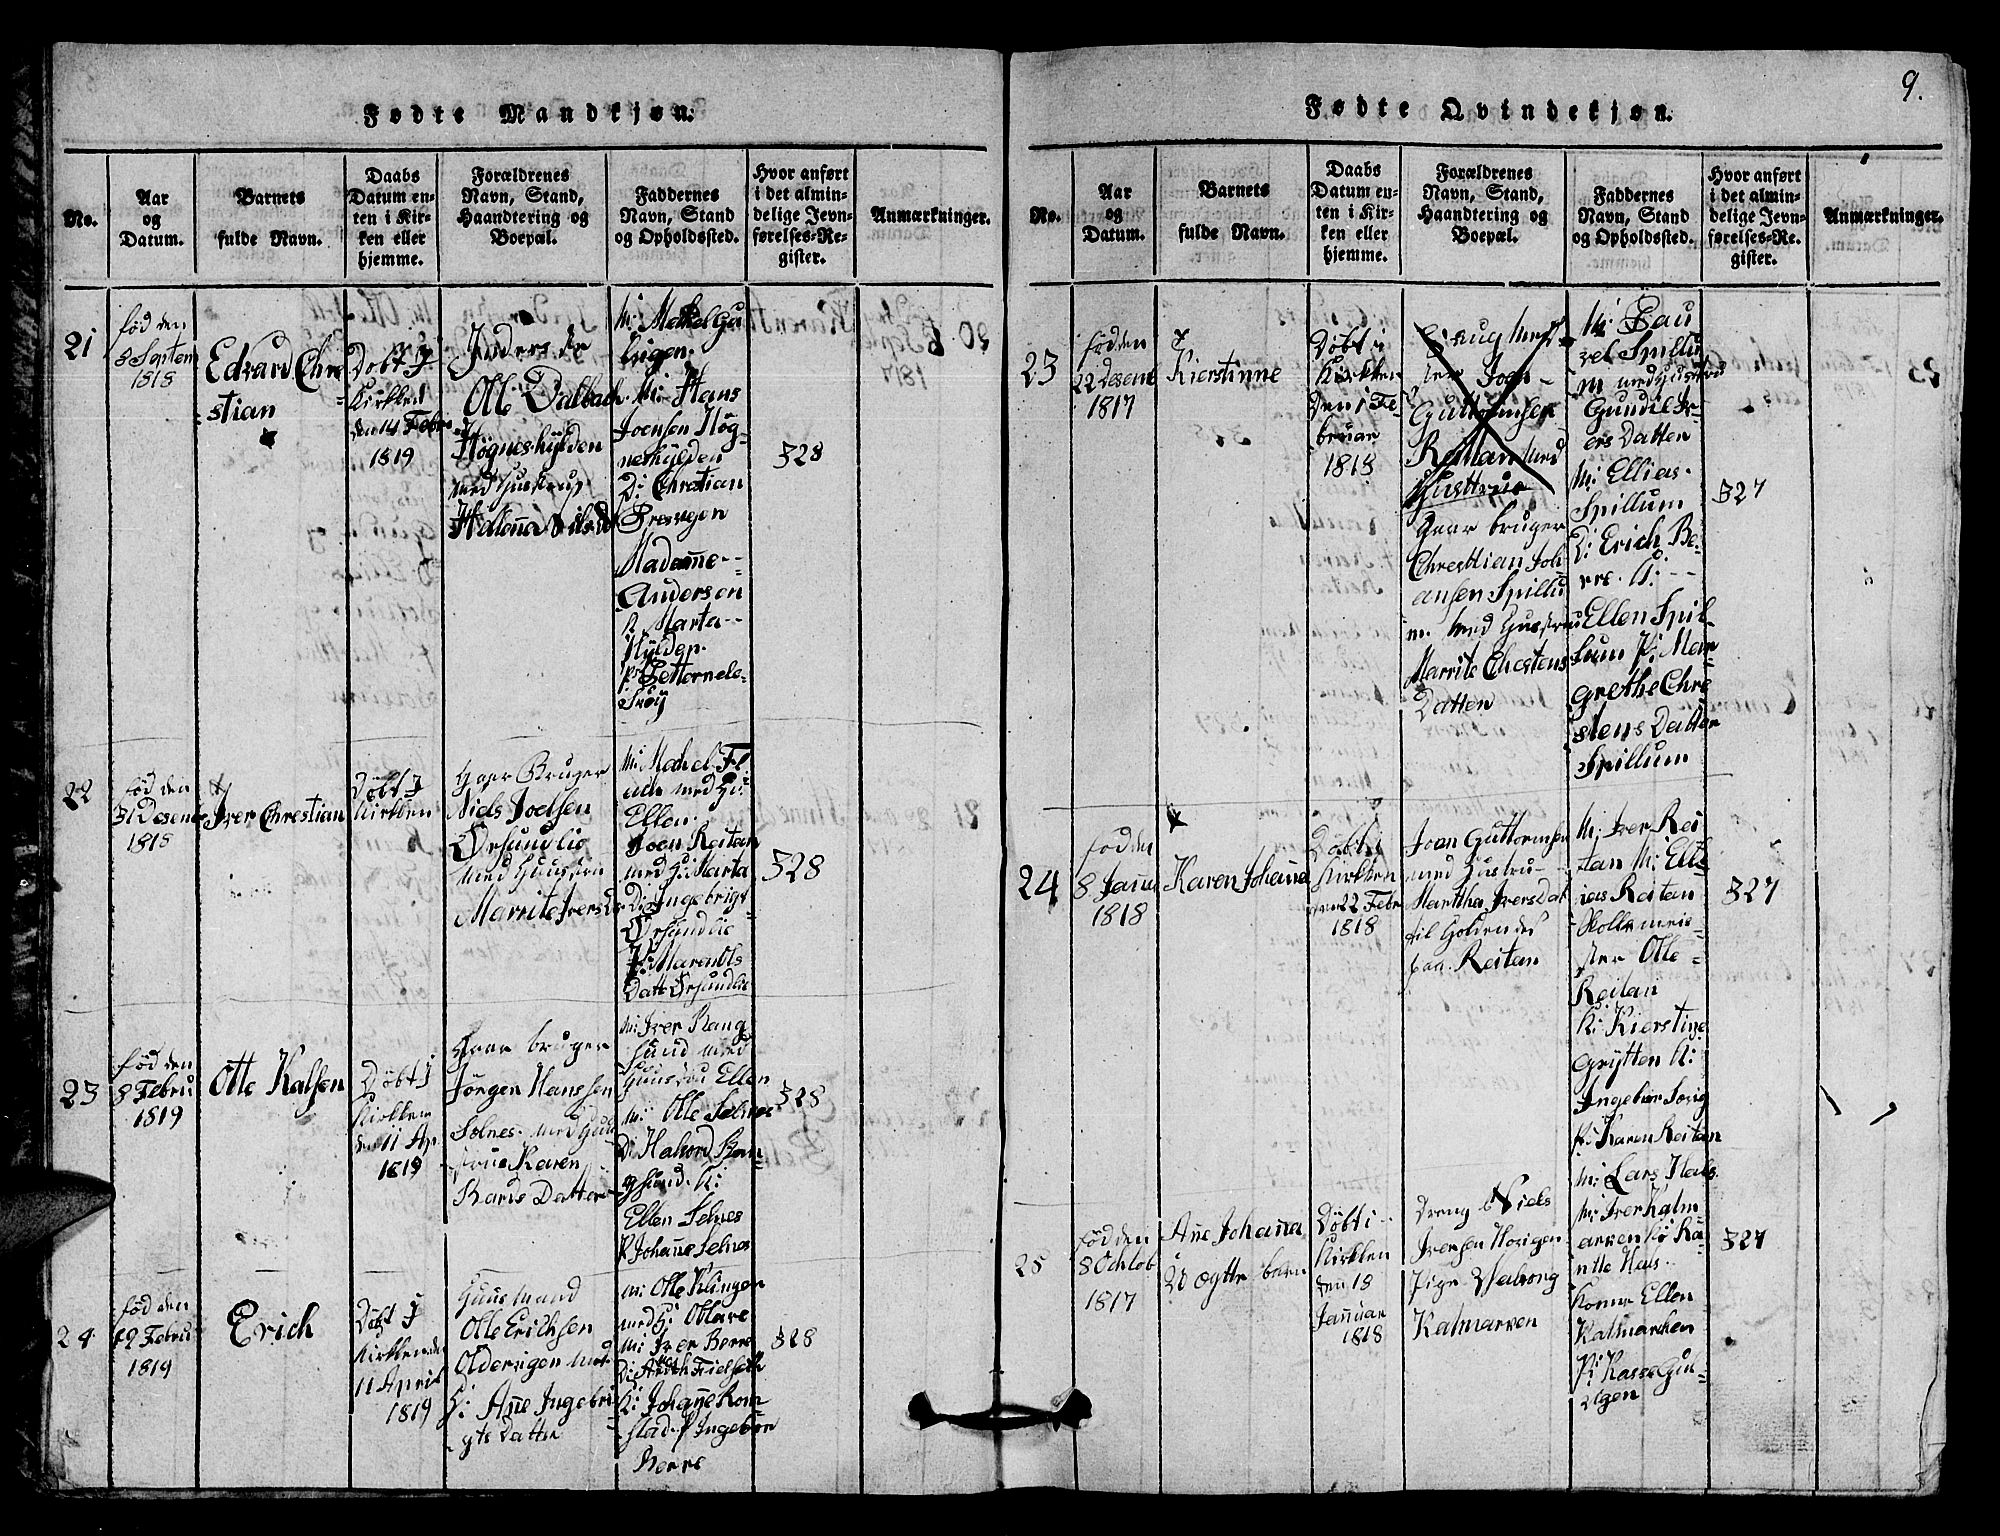 9.
Fødte Mandkjøn.
No.
Aar
og
Datum.
Barnets
fulde Navn.
Daabs
Datum en-
ten i Kir-
ken eller
hjemme.
Forældrenes
Navn, Stand,
Haandtering og
Boepæl.
Faddernes
Navn, Stand
og Opholdssted.
Hvor anført
i det almin-
delige Jevn-
førelses-Re-
gister.
Anmærkninger.
21
fød den
8 Septem
1818
Edvard Chre
stian
Døbt I
Kirkken
den 14 Febr
1819
Inders de
Olle Dalbach
Högneshÿlden
med Hustrue
M: Mekel
M: Hans
Joensen Hög-
neshÿlden
D: Chrestian
Madamme-
Anderson
P. Marta-
Hÿlden
328
22
fød den
31 Desem
1818
Iver Chrestian
Døbt I
Kirkken
Gaar Bruger
Niels Joelsen
Ørsundlie
med Huustru
Marrite Iversd
Ellen
Joen Reitan
med H: Marta
D: Ingebrigt
Ørsundlie
P: Maren Ols
Datt Ørsundlie
328
23
fød den
8 Febru
1819
Otte Kalsen
Døbt I
Kirkken
den 11 Ap
1819
Gaar bruger
Jörgen Hanssen
Solnes med Huu
strue Karen
Datter
M: Iver Rang
sund med
Huustru Ellen
M: Olle Selnes
D: Halvord Ram
gsund. K:
Ellen Selnes
P. Johanne Selnes
328
24
fød den
19 Febru
1819
Erich
Døbt I
Kirkken den
11 April
1819
Huus mand
Olle Erichsen
Oldervigen med
H: Anne Ingebri
gts Datter
M: Olle Klingen
med H:
M: Iver Berre
D:
K: Johanne Rom
stad P Ingebor
Berre
328
Fødte Qvindekjøn.
No.
Aar
og
Datum.
Barnets
fulde Navn.
Daabs
Datum en-
ten i Kir-
ken eller
hjemme.
Forældrenes
Navn, Stand,
Haandtering og
Boepæl.
Faddernes
Navn, Stand
og Opholdssted.
Hvor anført
i det almin-
delige Jevn-
førelses-Re-
gister.
Anmærkninger.
23
fød den
22 Desem
1817
Kierstinne
Døbt i
Kirkken
Den 1 Fe-
bruar
1818
Joen
Guttormsen
Reitan med
Husttrue
Gaar bruger
Chrestian Joh
ansen Spillu
m med Hustru
Marrite Chestens
Datten
M: Pau
vel Spillu
m med Hustru
Gundil Iv-
ers Datten
M: Ellias
Spillum
D: Erich Be-
rre. K:--
Ellen Spil-
lum P: Mar-
grethe Chre
stens Datter
Spillum
327
24
fød den
8 Janu
1818
Karen Johanna
Døbt i
Kirkken
den 22 Febr
1818
Joan Guttormsen
med Hustru
Marttha Iversdat
til Holdendes
paa Reitan
M: Iver Rei
tan M: Ell
ias Reitan
Skolle meis-
ster Olle-
Reitan
K: Kierstine
Grÿtten K:
Ingebor
P: Karen Reitan
327
25
fød den
8 Octob
1817
Ane Johanna
U ægtte barn
Døbt i
Kirkken
den 18
Januar
1818
Dreng Niels
Iversen
Pige
Kalmarven
M: Lars Hals
M: Iver Kalm
arven K: Ra-
nitte Hals
Konne Ellen
Kalmarken
P:
327